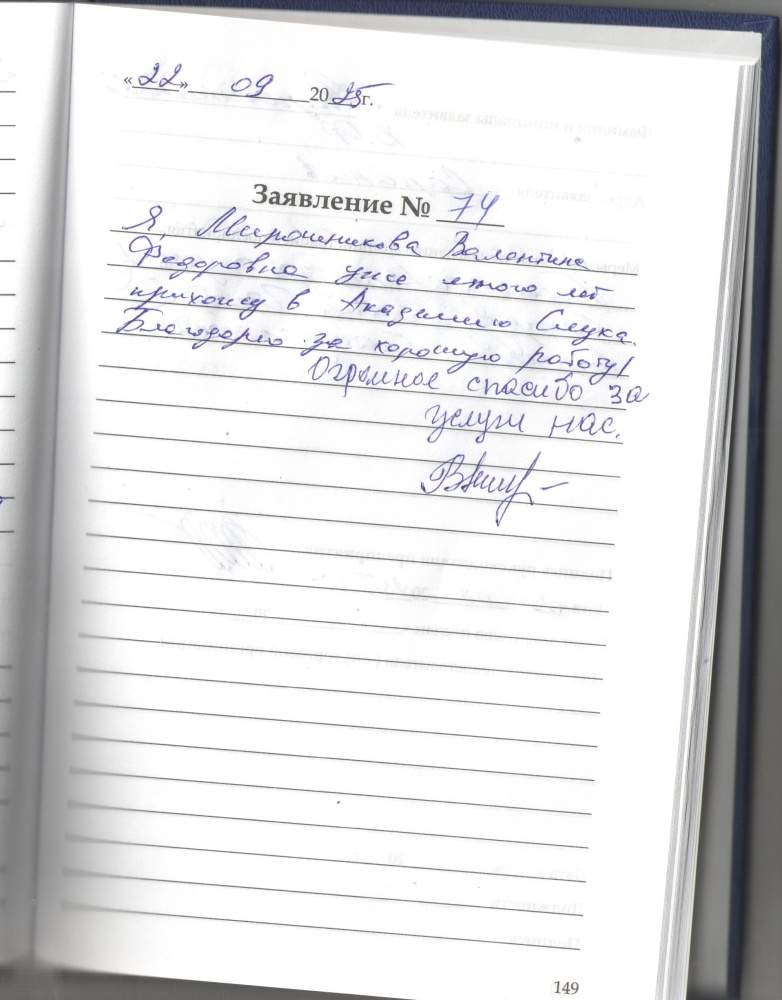 «22» 09 2025г.
Заявление № 74
Я, Мирошникова Валентина
Федоровна уже много лет
прихожу в Академию Слуха.
Благодарю за хорошую работу!
Огромное спасибо за
услуги нас.
149